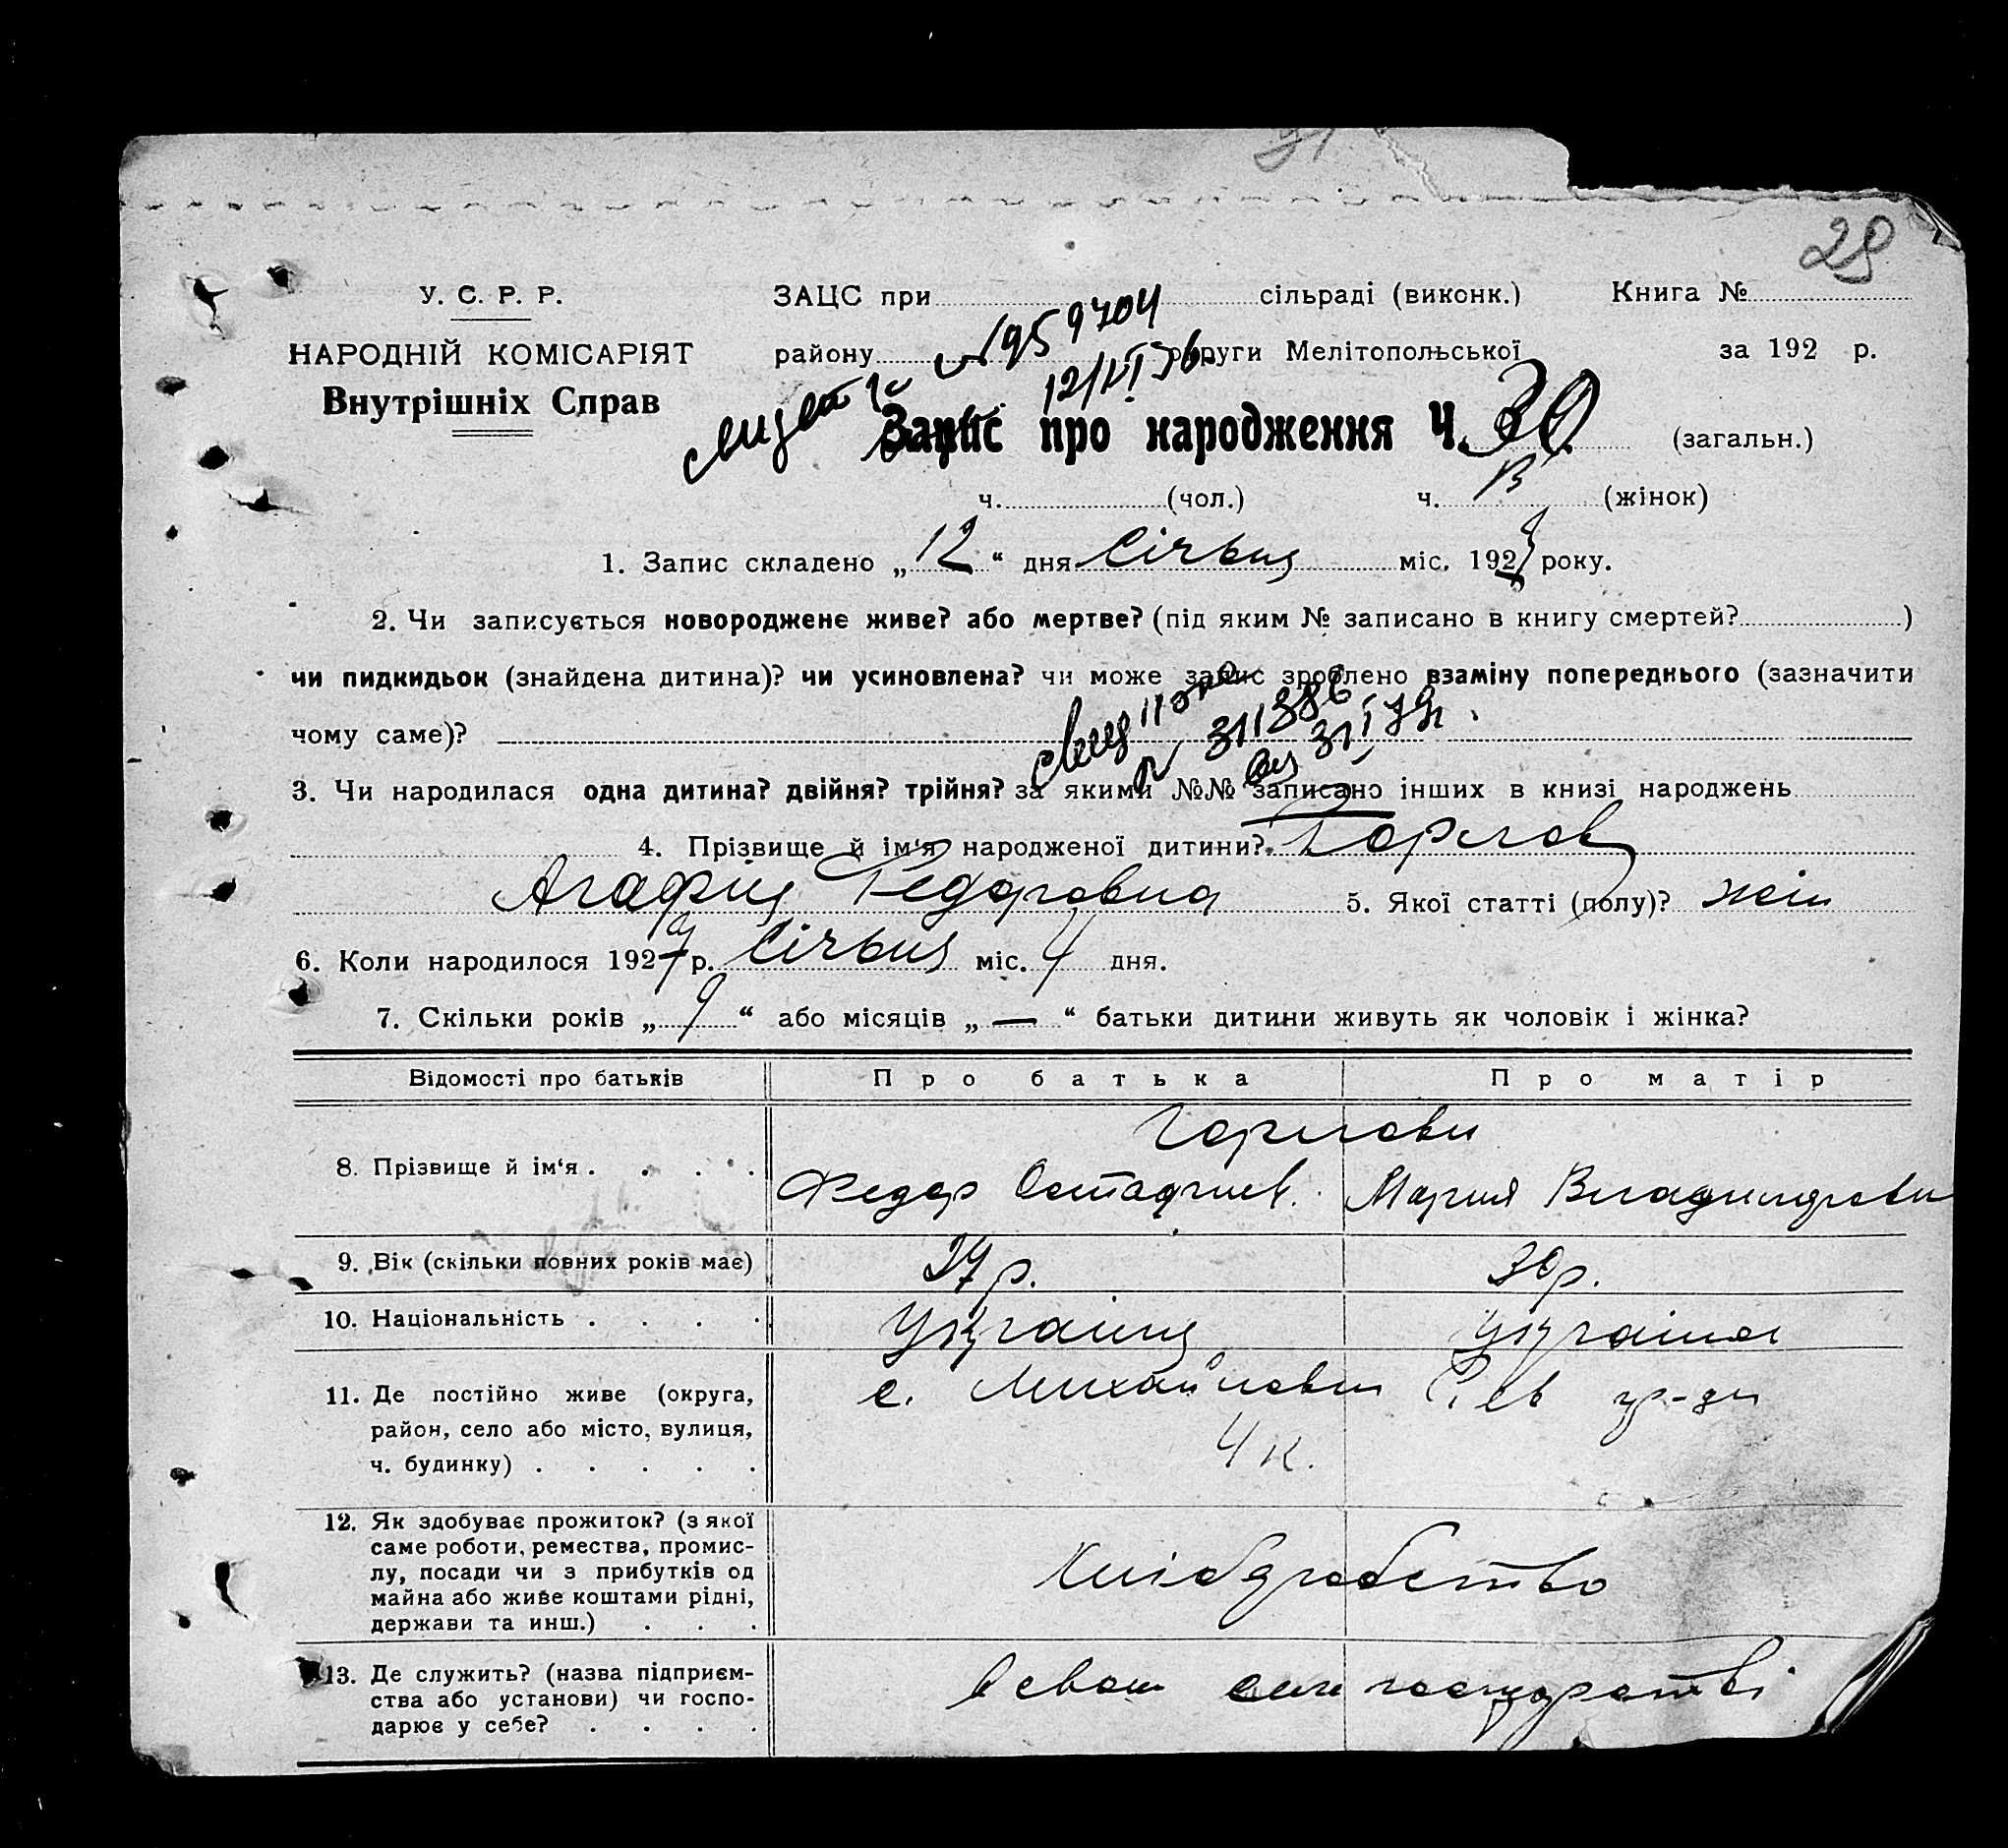 28
У. С. Р. Р.
ЗАЦС при сільраді (виконк.)
Книга №
НАРОДНІЙ КОМІСАРІЯТ
району округи Мелітопольської
за 192 р.
Внутрішніх Справ
Запис про народження Ч. 30 (загальн.)
ч. (чол.) ч. (жінок)
1. Запис складено „12“ дня Січня міс. 192 року.
2. Чи записується новороджене живе? або мертве? (під яким № записано в книгу смертей? )
чи пидкидьок (знайдена дитина)? чи усиновлена? чи може запис зроблено взаміну попереднього (зазначити
чому саме)?
3. Чи народилася одна дитина? двійня? трійня? за якими №№ записано інших в книзі народжень
4. Прізвище й ім‘я народженої дитини? Горлов
Агафия Федоровна 5. Якої статті (полу)? жін
6. Коли народилося 1927 р. Січня міс. 4 дня.
7. Скільки років „9“ або місяців „—“ батьки дитини живуть як чоловік і жінка?
Відомості про батьків
Про батька
Про матір
Горлови
8. Прізвище й ім‘я . . . .
Федор
Мария
9. Вік (скільки повних років має)
27 р.
30 р.
10. Національність . . . .
11. Де постійно живе (округа,
район, село або місто, вулиця,
ч. будинку) . . . . .
с. Михайловки
12. Як здобуває прожиток? (з якої
саме роботи, ремества, промис-
лу, посади чи з прибутків од
майна або живе коштами рідні,
держави та инш.) . . .
Хліборобство
13. Де служить? (назва підприєм-
ства або установи) чи госпо-
дарює у себе? . . . .
в свом господарстві